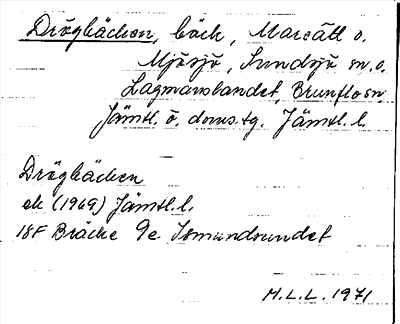 Drögbäcken, bäck, Marsätt o.
Mjösjö, Sundsjö sn. o.
Lagmanslandet, Brunflo sn,
Jämtl. ö. doms.tg. Jämtl. l.
Drögbäcken
ek (1969) Jämtl. l.
18F Bräcke 9e Ismundsundet
M.L.L. 1971